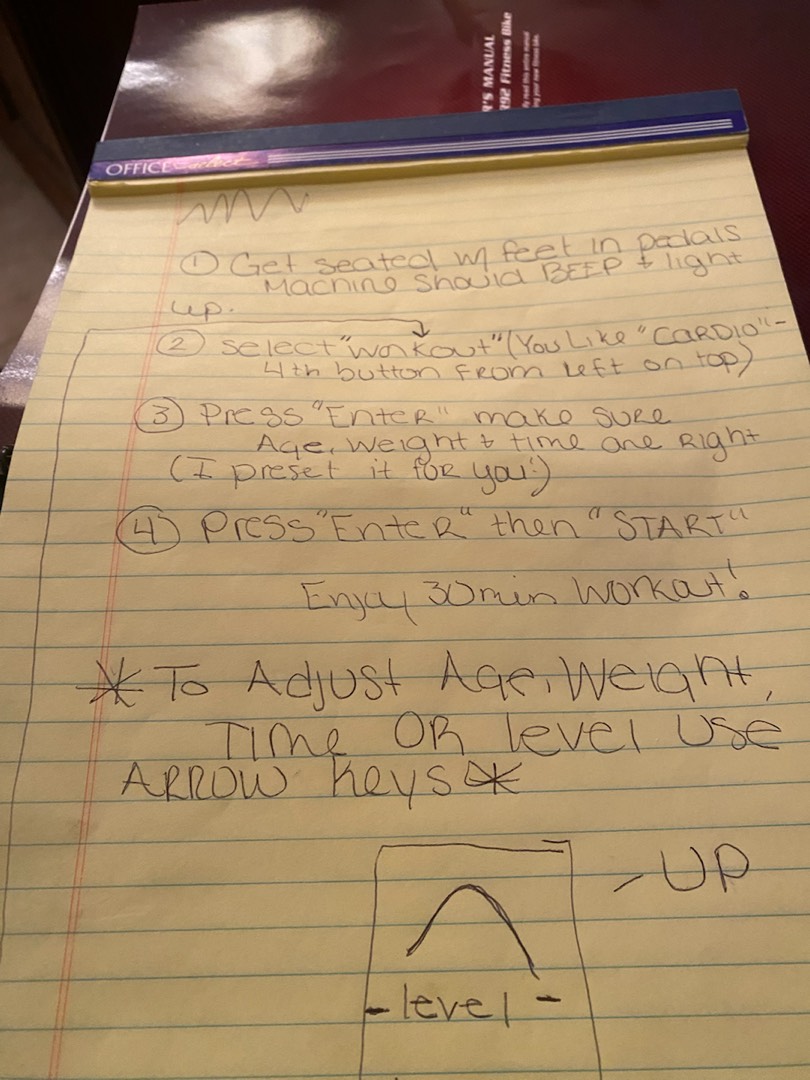 R'S MANUAL
R92 Fitness Bike
OFFICE Select
① Get seated w/ feet in pedals
Machine should BEEP + light
up.
② Select "Workout" (You Like "CARDIO" -
4th button from left on top)
③ Press "Enter" make sure
Age, Weight & time are Right
(I preset it for you!)
④ Press "Enter" then "START"
Enjoy 30min Workout!
* To Adjust Age, Weight,
Time OR level Use
ARROW Keys *
- UP
- level -